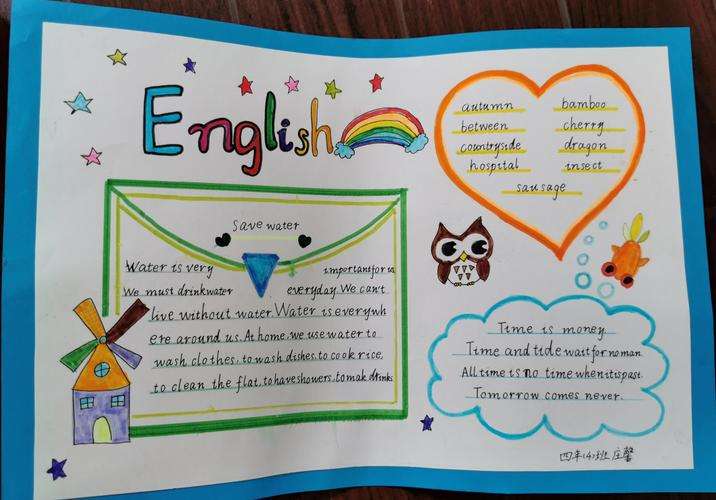 English
autumn bamboo
between cherry
countryside dragon
hospital insect
sausage
Save water
Water is very importantforus
We must drinkwater everyday.We can't
live without water.Water is everywh
ere around us.At home.we use water to
wash clothes.to wash dishes.to cook rice.
to clean the flat.tohaveshowers.tomak drinks
Time is money.
Time and tide waitfornoman.
All time is no time whenitispast.
Tomorrow comes never.
四年(4)班 庄馨